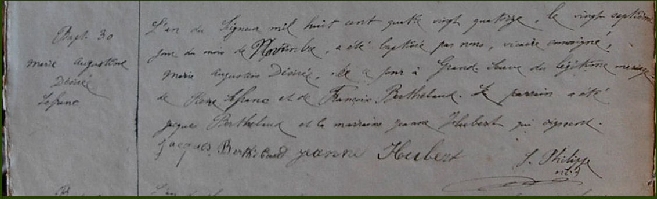 Bapt. 30
Marie Augustine
Désirée
Lefranc
L'an du Seigneur mil huit cent quatre vingt quatorze, le vingt septième
jour du mois de Novembre, a été baptisée par nous, vicaire soussigné,
Marie Augustine Désirée, née à Grand du légitime mariage
de Pierre Lefranc et de Françoise Berthelaud. Le parrain a été
Jacques Berthelaud et la marraine Jeanne Hubert qui signent.
Jacques Jeanne Herbert
J. Philippe